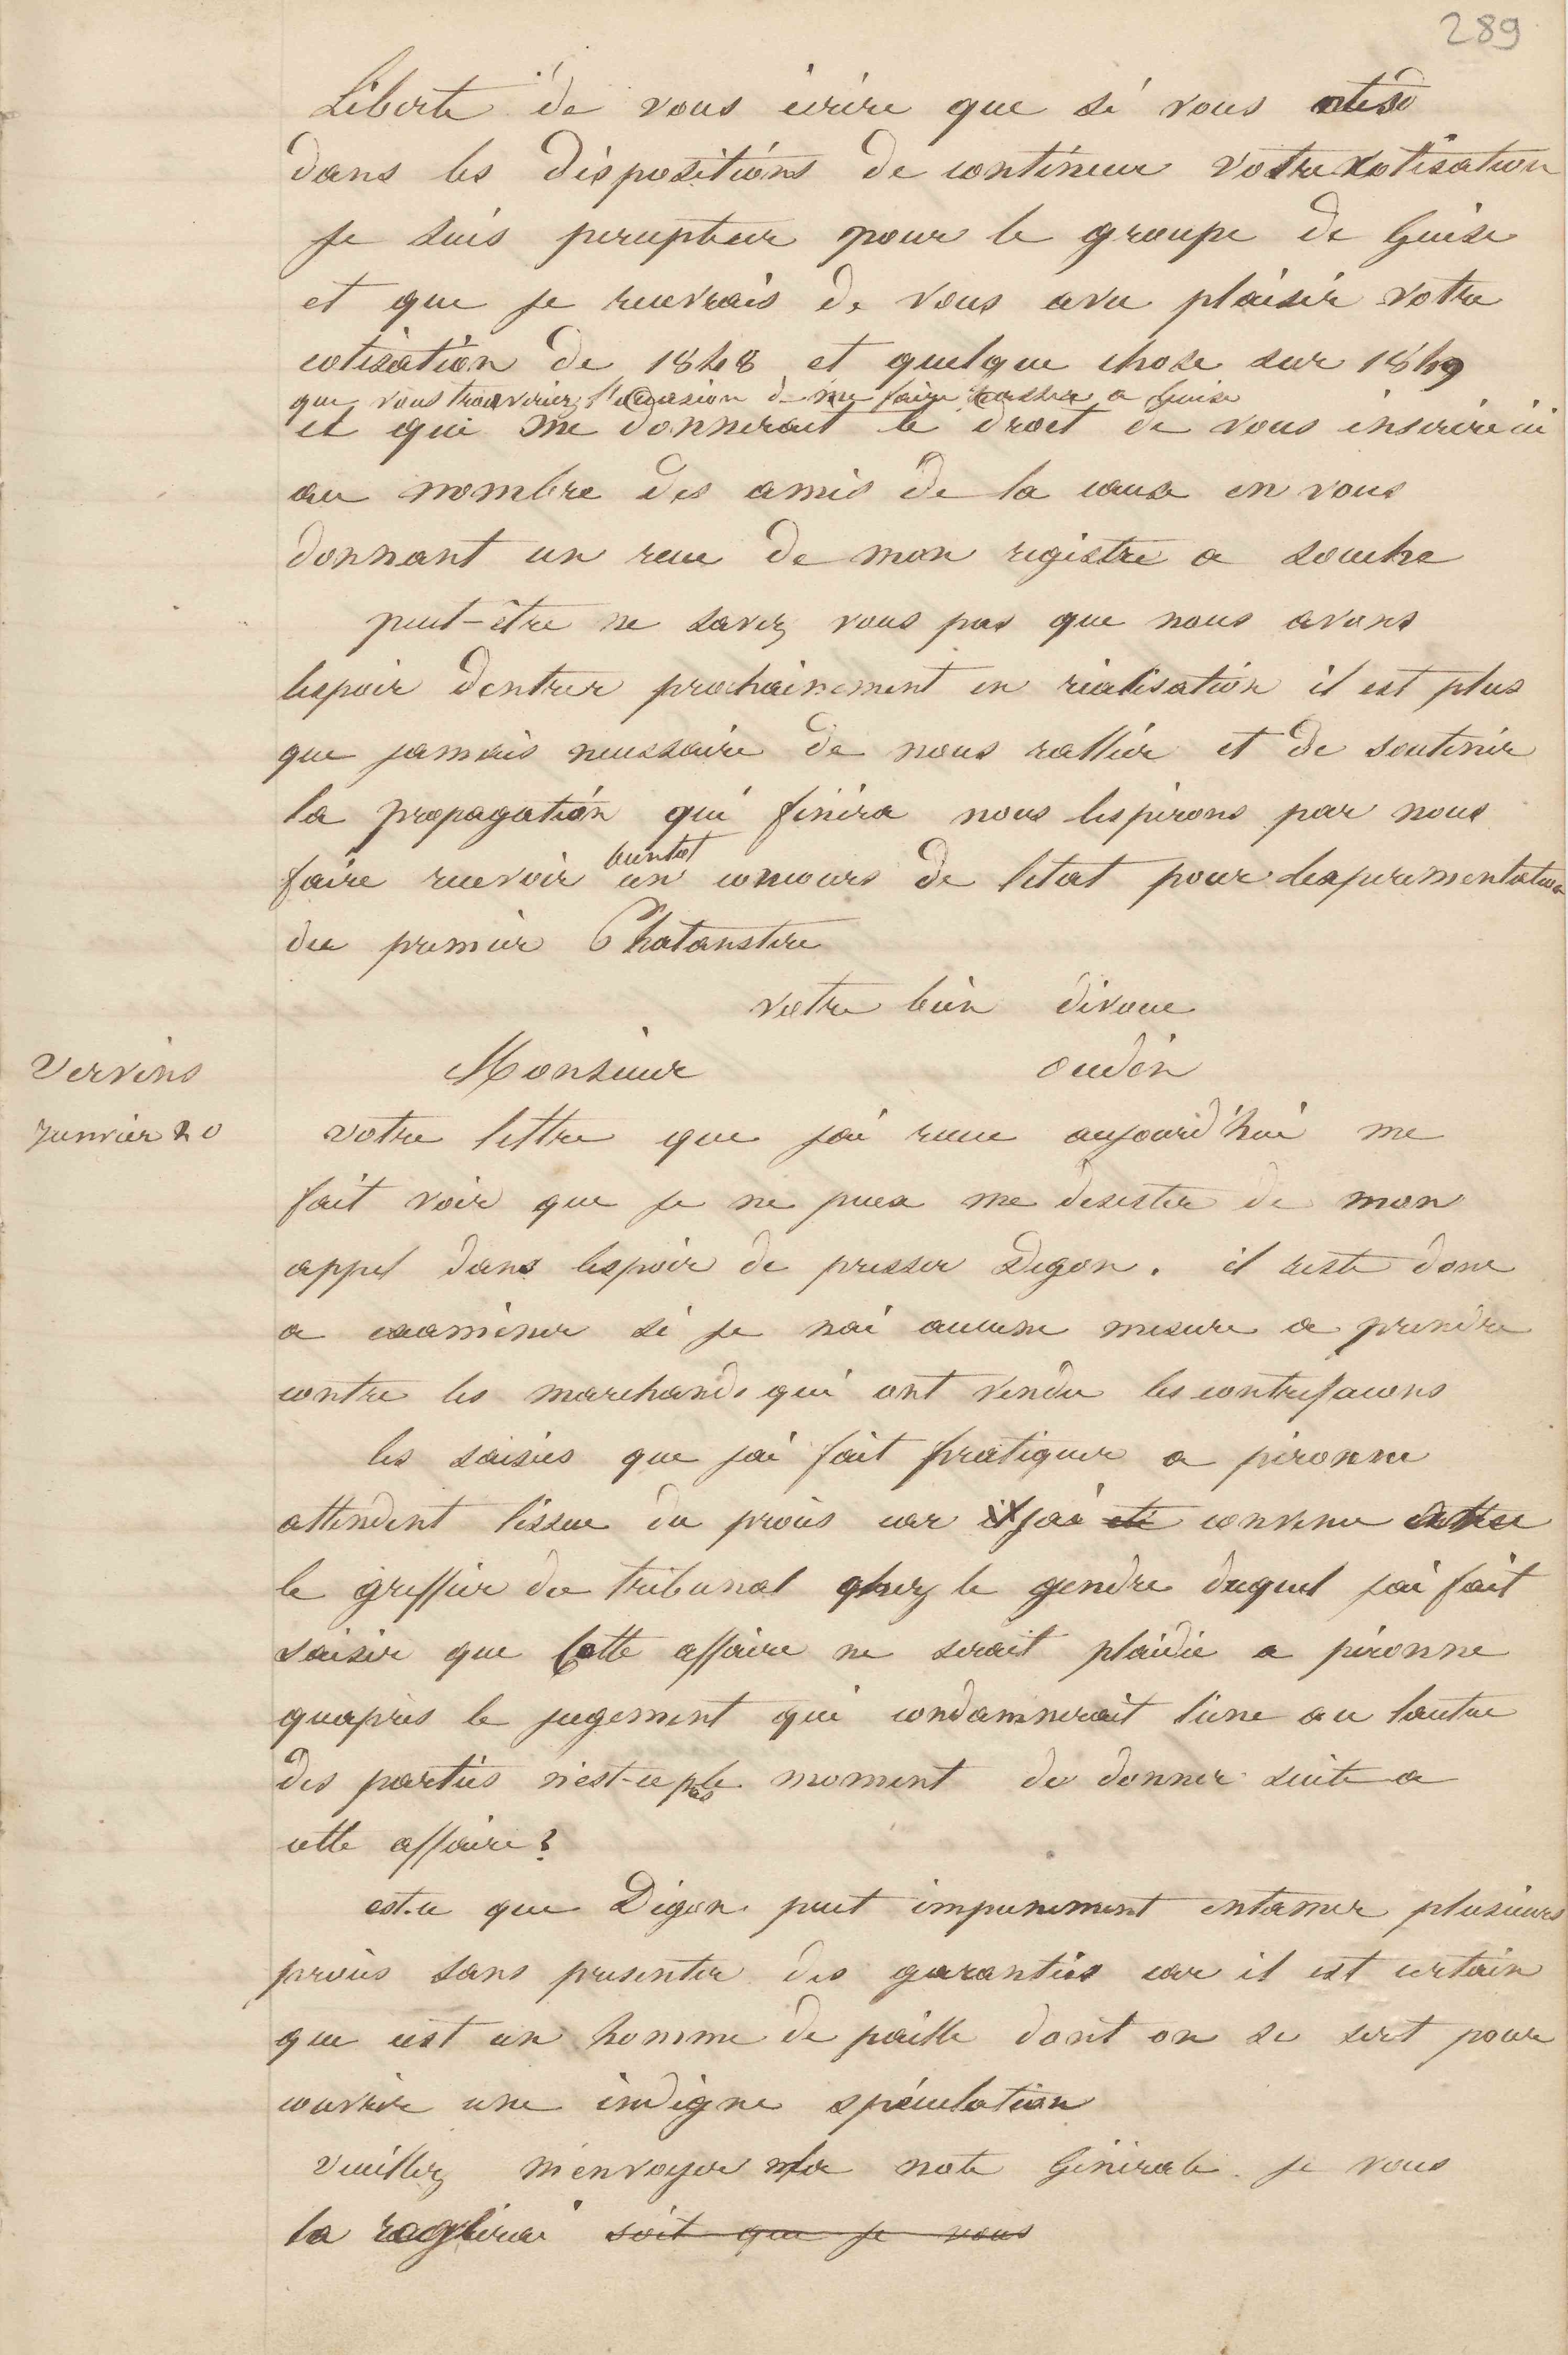 289
Liberte de vous écrire que si vous etes
dans les dispositions de continuer votre cotisation
je suis percepteur pour le groupe de Guise
et que je recevrais de vous avec plaisir votre
cotisation de 1848 et quelque chose sur 1849
que vous trouveriez l'occasion de me faire passer a Guise
et qui me donnerait le droit de vous inscrire ici
au nombre des amis de la cause en vous
donnant un recu de mon registre a souche
peut-être ne savez vous pas que nous avons
lespoir dentrer prochainement en réalisation il est plus
que jamais necessaire de nous rallier et de soutenir
la propagation qui finira nous lespérons par nous
bientot
faire recevoir un concours de letat pour lexperimentation
du premier Phalanstere
votre bien dévoué
Vervins Monsieur oudin
Janvier 20 votre lettre que jai recue aujourd'hui me
fait voir que je ne peux me desister de mon
appel dans lespoir de presser Degon. il reste donc
a examiner si je nai aucune mesure a prendre
contre les marchands qui ont vendu les contrefacons
les saisies que jai fait pratiquer a péronne
attendent lissue du procès car il jai été convenu
le greffier du tribunal chez le gendre duquel jai fait
saisir que Cette affaire ne serait plaidée a péronne
quaprès le jugement qui condamnerait lune ou lautre
des parties n'est-ce pas le moment de donner suite a
cette affaire?
est-ce que Degon peut impunement entamer plusieurs
procès sans presenter des garanties car il est certain
que cest un homme de paille dont on se sert pour
couvrir une indigne spéculation
veuillez m'envoyer la note Générale je vous
la reglerai soit que je vous